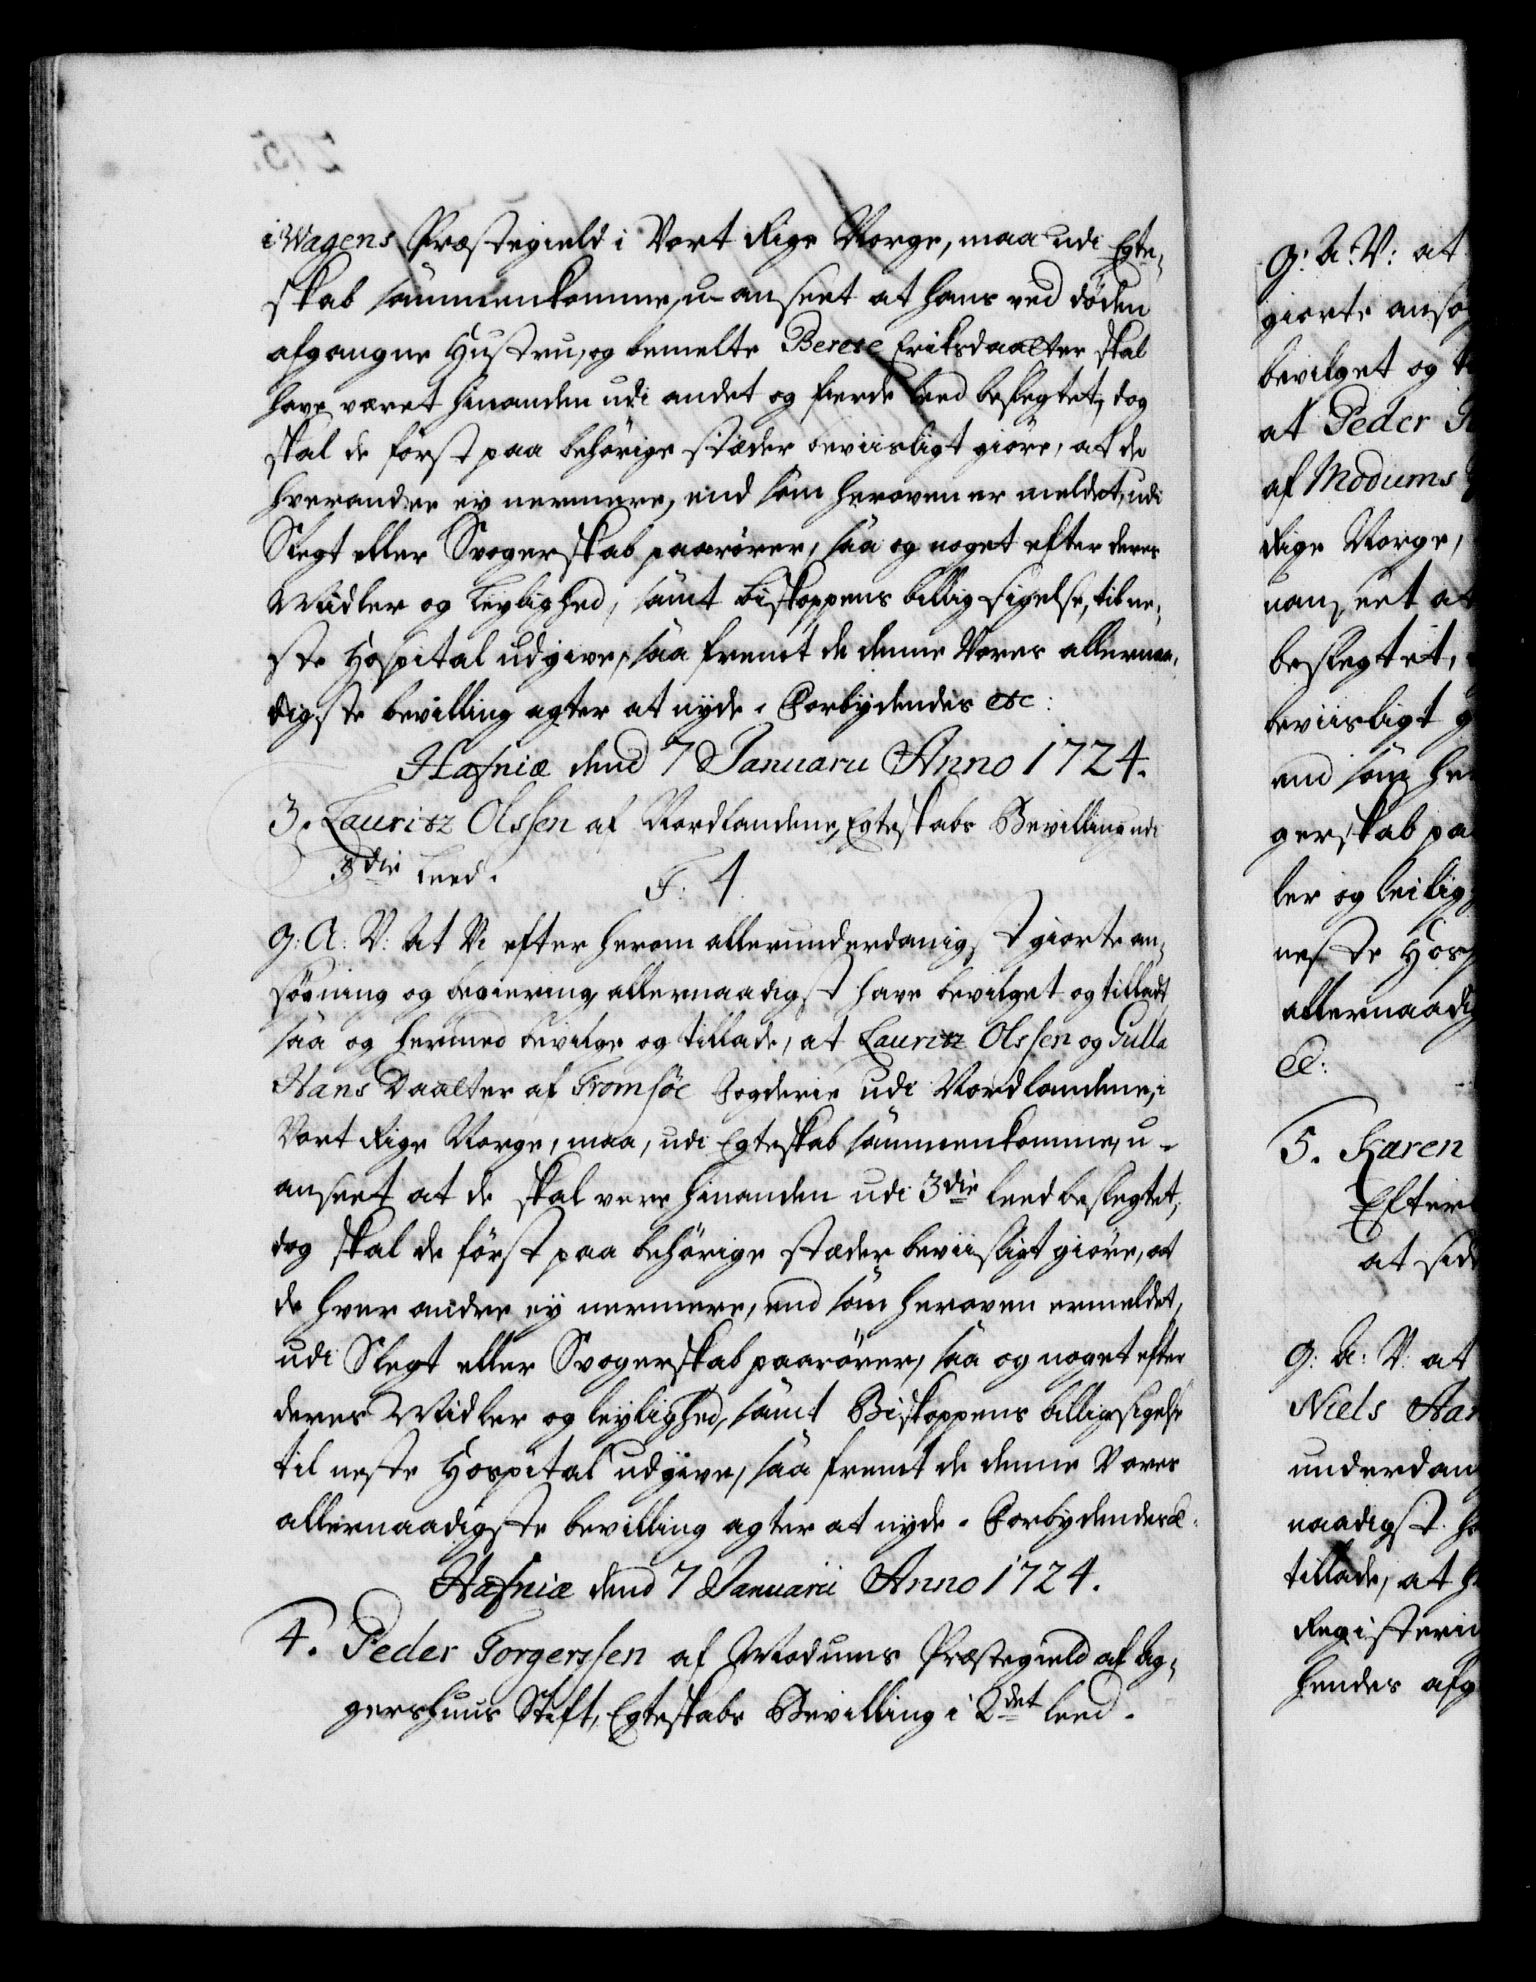 i Wagens Præstegield i Vort Rige Norge, maa udi Egte-
skab sammenkomme, u-anseet at hans ved døden
afgangne Hustru, og bemelte Berete Eriksdaatter skal
have været hinanden udi andet og fierde leed beslegtet, dog
skal de først paa behørige stæder beviisligt giøre, at de
hverandre ey nermere, end som heroven er meldet, udi
Slegt eller Svogerskab paarører, saa og noget efter deres
Midler og Leylighed, samt biskoppens billig sigelse, til ne-
ste Hospital udgive, saa fremt de denne Vores allernaa-
digste bevilling agter at nyde. Forbydendes etc:
Hafniæ dend 7 Januarii Anno 1724.
3. Lauritz Olssen af Nordlandene, Egteskabs Bevilling udi
3die Leed.
F: 4
G: A: V: At Vi efter herom allerunderdanigst giorte an-
søgning og begiering, allernaadigst have bevilget og tilladt,
saa og hermed bevilge og tillade, at Lauritz Olssen og Gulla
Hans Daatter af Tromsøe Fogderie udi Nordlandene, i
Vort Rige Norge, maa, udi Egteskab sammenkomme, u-
anseet at de skal vere hinanden udi 3die leed beslegtet,
dog skal de først paa behørige stæder beviisligt giøre, at
de hver andre ey nermere, end som heroven ermeldet,
udi Slegt eller Svogerskab paarører, saa og noget efter
deres Midler og leylighed, samt Biskoppens billigsigelse
til neste Hospital udgive, saa fremt de denne Vores
allernaadigste bevilling agter at nyde. Forbydendes &.
Hafniæ dend 7 Januarii Anno 1724.
4. Peder Torgerssen af Modums Præstegield af Ag-
gershuus Stift, Egteskabs Bevilling i 2det leed.
G: A: V: at
giorte ansøg
bevilget og ti
at Peder
af Modums
Rige Norge,
uanseet at
beslegtet,
beviisligt g
end som her
gerskab pa
ler og leilig
neste Hosp
allernaadig
&:
5. Karen
Efter
at sid
G: A: V: at
Niels Han
underdan
naadigst ha
tillade, at h
Registerin
hendes afg